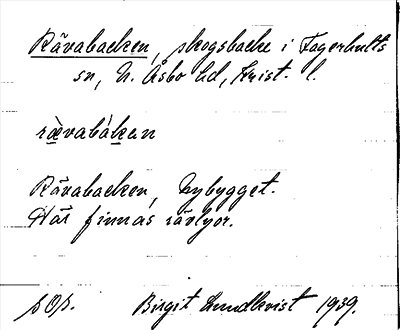 Rävabacken, skogsbacke i Fagerhults
sn, N. Åsbo hd, Krist. l.
rävabákan
Rävabacken, nybygget.
Här finnas rävlyor.
Birgit Lundkvist 1939.